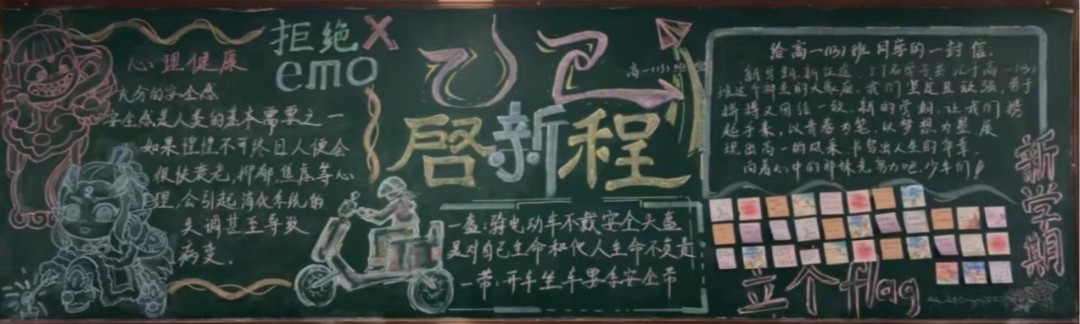 心理健康
充分的安全感
安全感是人类的基本需要之一
如果惶惶不可终日人便会
很快衰老,抑郁焦虑等心
理,会引起消化系统的
失调甚至导致
病变。
拒绝X
emo
乙巳
高一(3)班
启新程
一盔:骑电动车不载安全头盔
是对自己生命和他人生命不负责
一带:开车坐车要系安全带
给高一(3)班同学的一封信.
拼搏又团结一致.新的学期.让我们携
起手来,以青春为笔.以梦想为墨.展
现出高一的风采.书写出人生的华章.
向着心中的那抹光努力吧.少年们!
立个flag
新学期